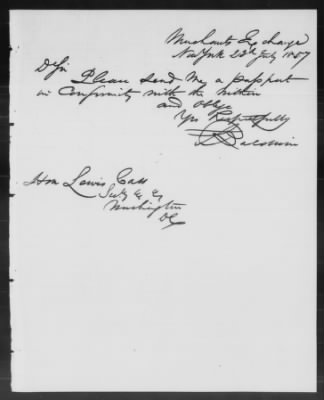 Merchants Exchange
New York 22d July 1857
D Sir Please send me a passport
in Conformity with the within
and oblige
Yrs Respectfully
Hon Lewis Cass
Secty &c &c
Washington
DC